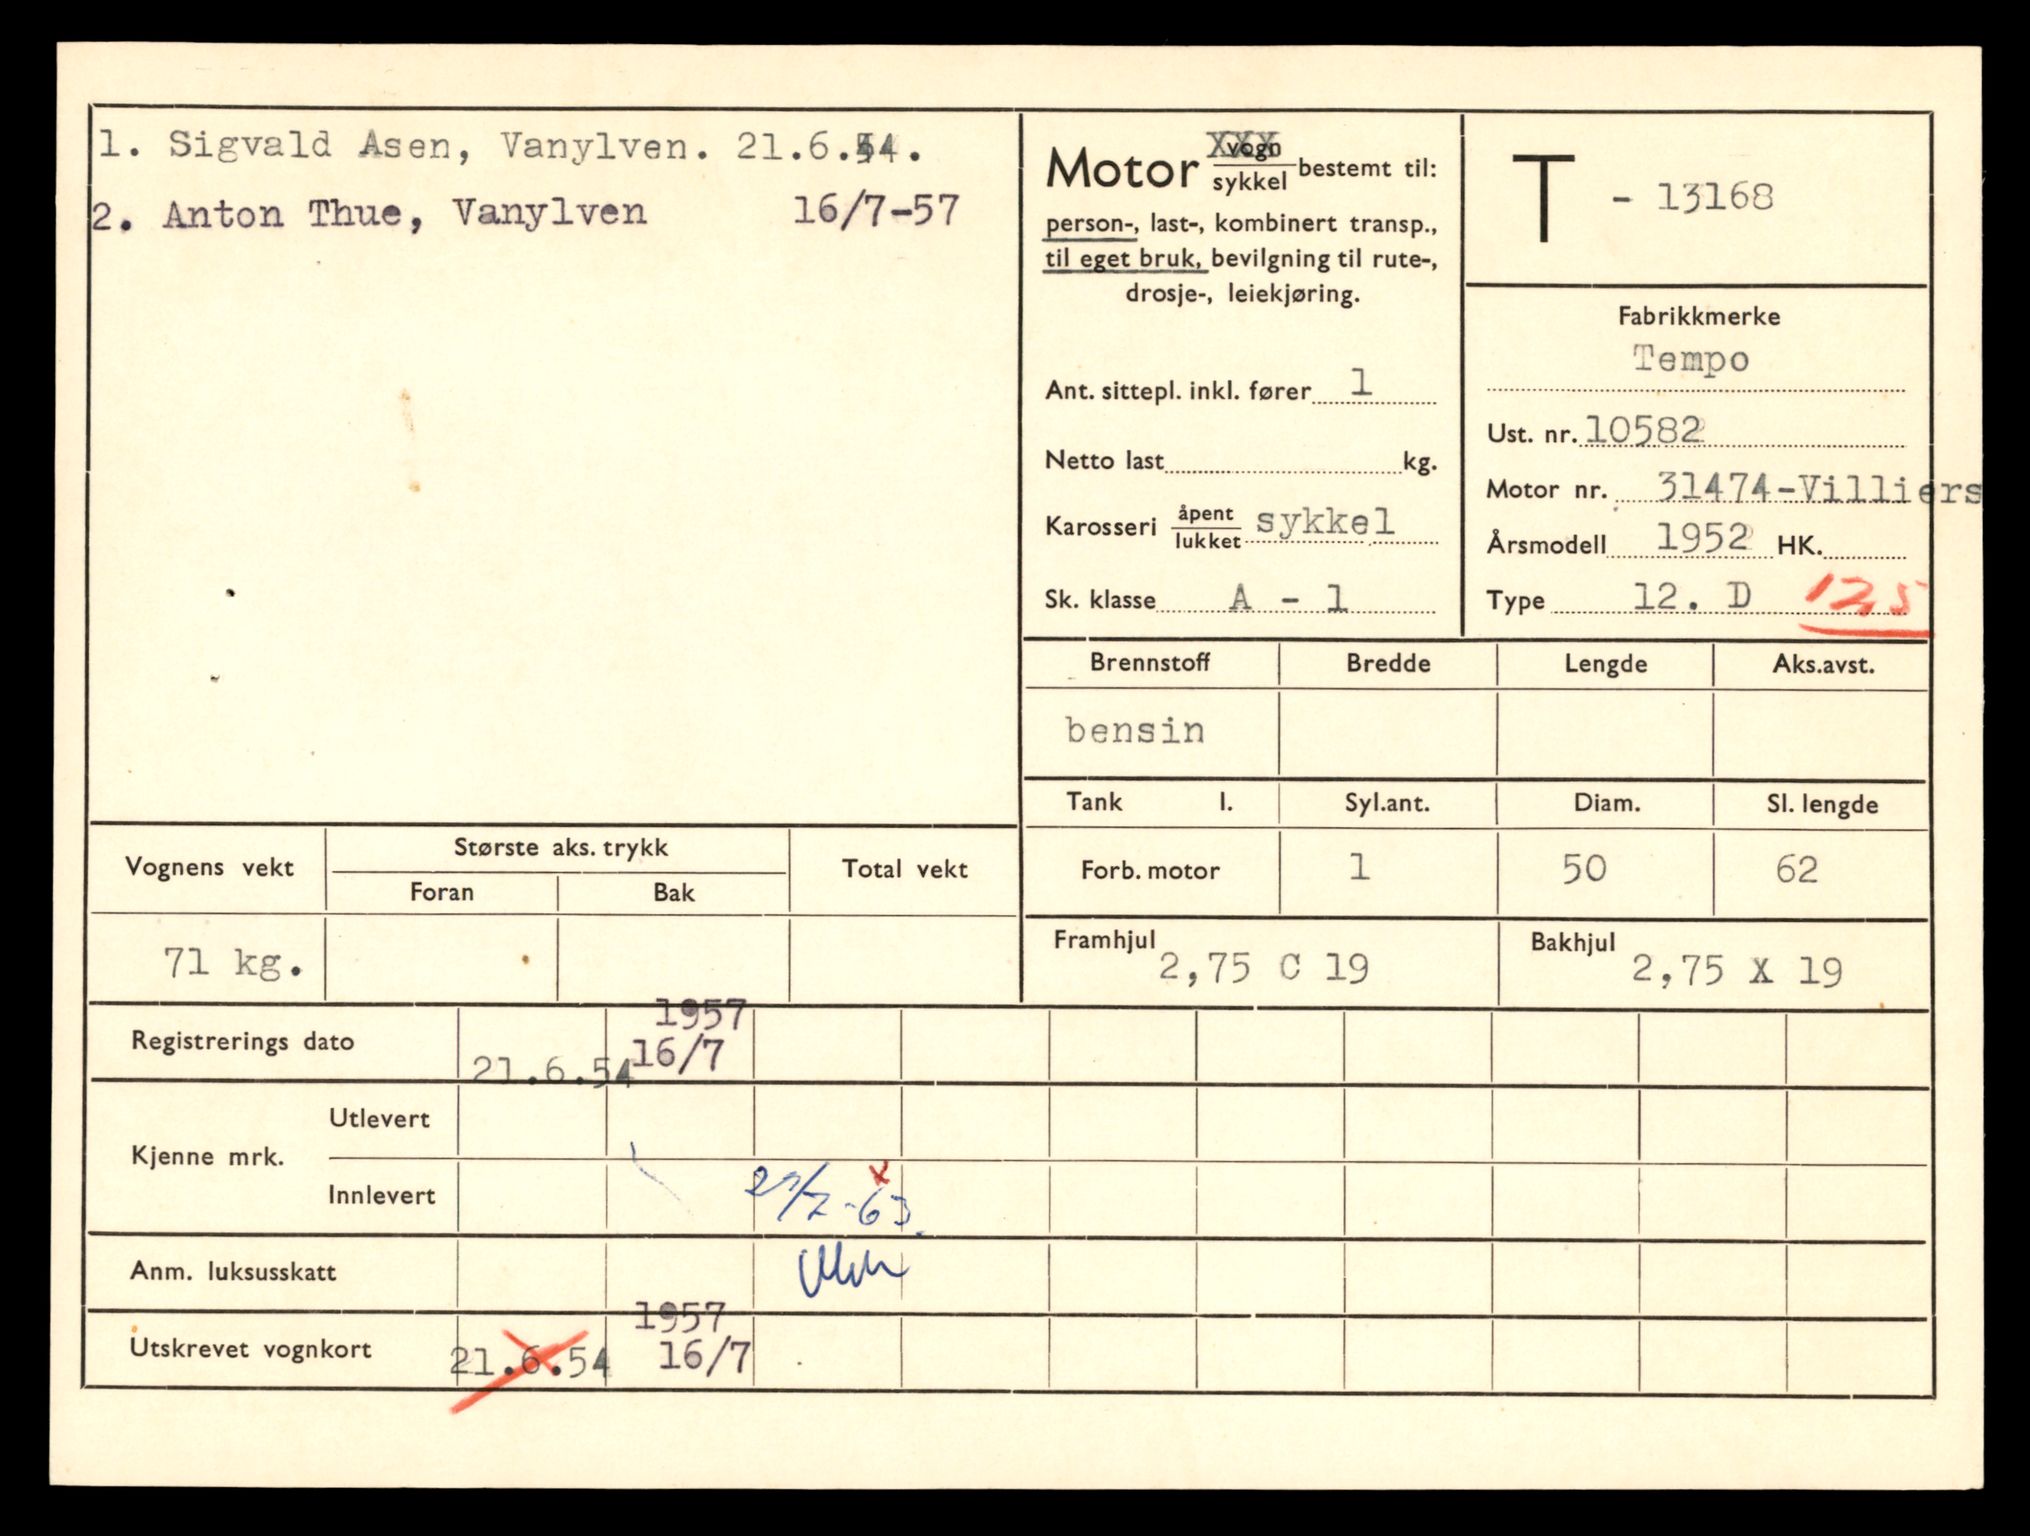 1. Sigvald Asen, Vanylven. 21.6.54.
2. Anton Thue, Vanylven 16/7-57
Motor vogn XXX
sykkel bestemt til:
person-, last-, kombinert transp.,
til eget bruk, bevilgning til rute-,
drosje-, leiekjøring.
Ant. sittepl. inkl. fører 1
Netto last kg.
Karosseri åpent
lukket sykkel
Sk. klasse A - 1
T - 13168
Fabrikkmerke
Tempo
Ust. nr. 10582
Motor nr. 31474-Villiers
Årsmodell 1952 HK.
Type 12. D 125
Brennstoff Bredde Lengde Aks.avst.
bensin
Tank l. Syl.ant. Diam. Sl. lengde
Forb. motor 1 50 62
Framhjul 2,75 C 19 Bakhjul 2,75 X 19
Vognens vekt Største aks. trykk Total vekt
Foran Bak
71 kg.
Registrerings dato 21.6.54 1957
16/7
Kjenne mrk.
Utlevert
Innlevert 27/7-63. x
Anm. luksusskatt
Utskrevet vognkort 21.6.54 1957
16/7